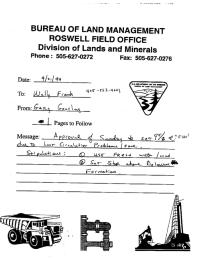 BUREAU OF LAND MANAGEMENT
ROSWELL FIELD OFFICE
Division of Lands and Minerals
Phone : 505-627-0272 Fax: 505-627-0276
Date:
To: Wally Frank
From: Gary
Pages to Follow
Message: Approval of Sunday to set 9 5/8"
due to Lost Circulation Problems
Stipulations: ① USE FRESH water mud
② Set above Delaware
Formation